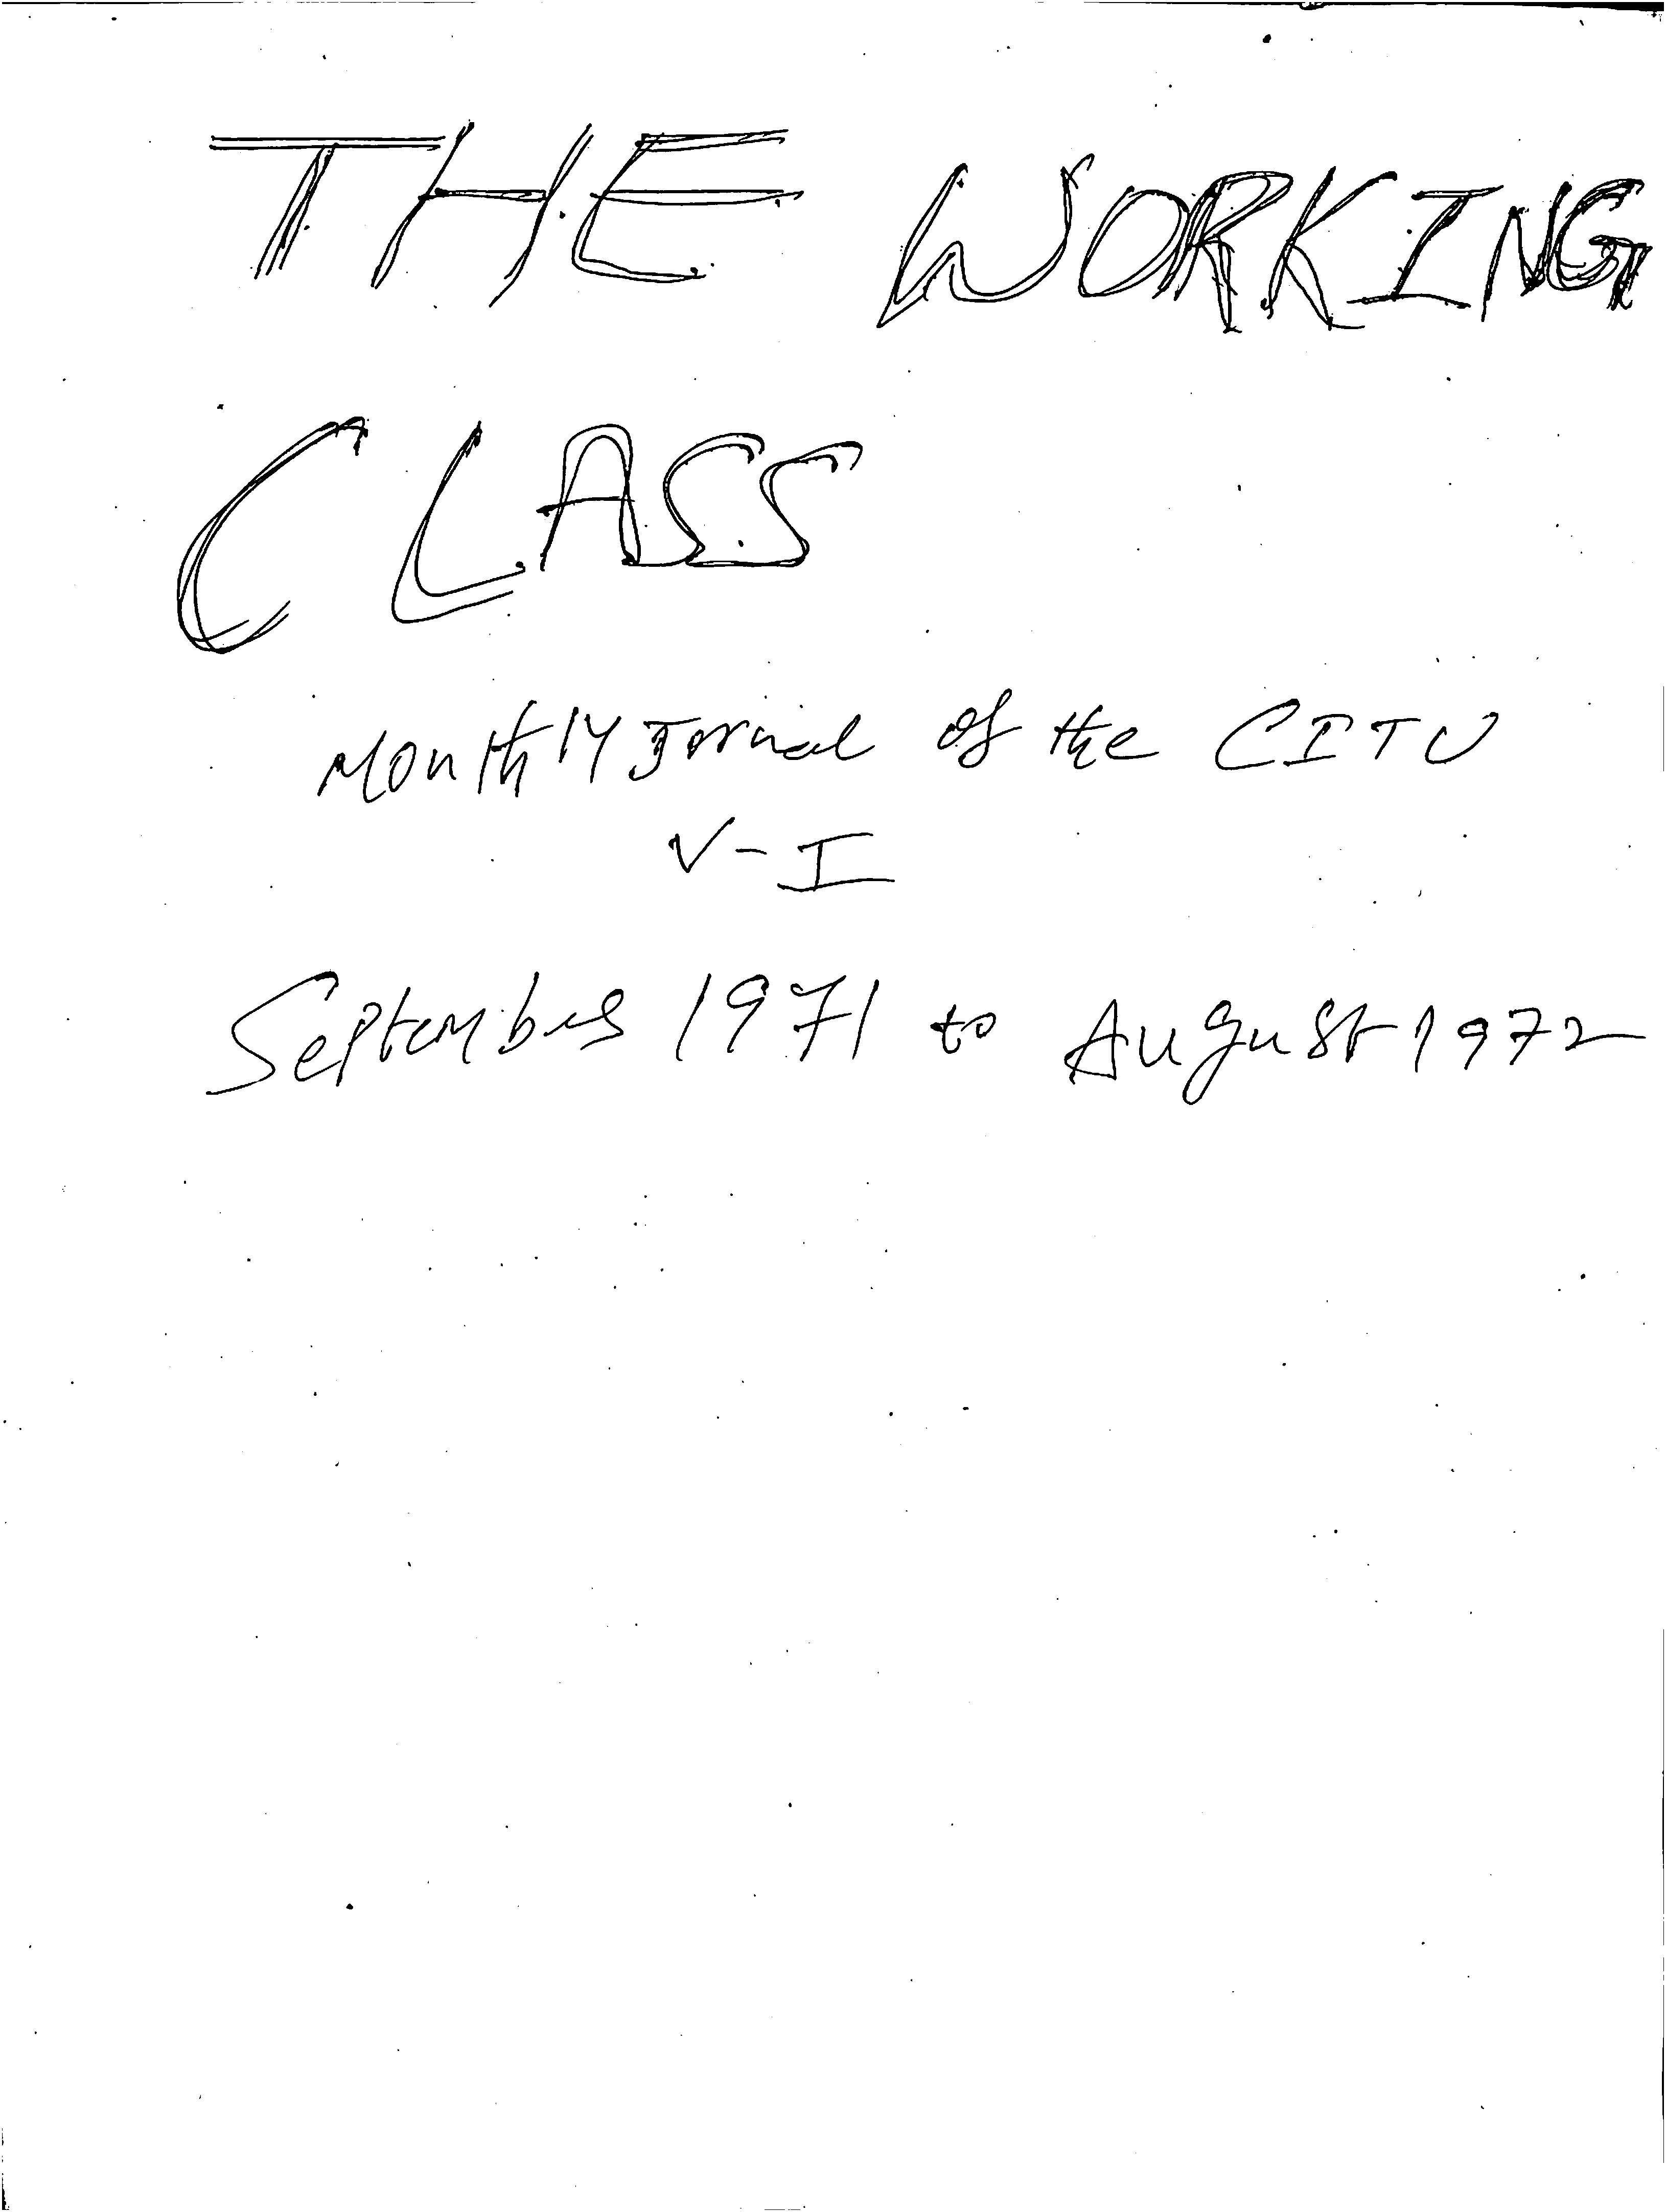 THE WORKING
CLASS
Monthly Jornal of the CITU
V-I
September 1971 to August 1972